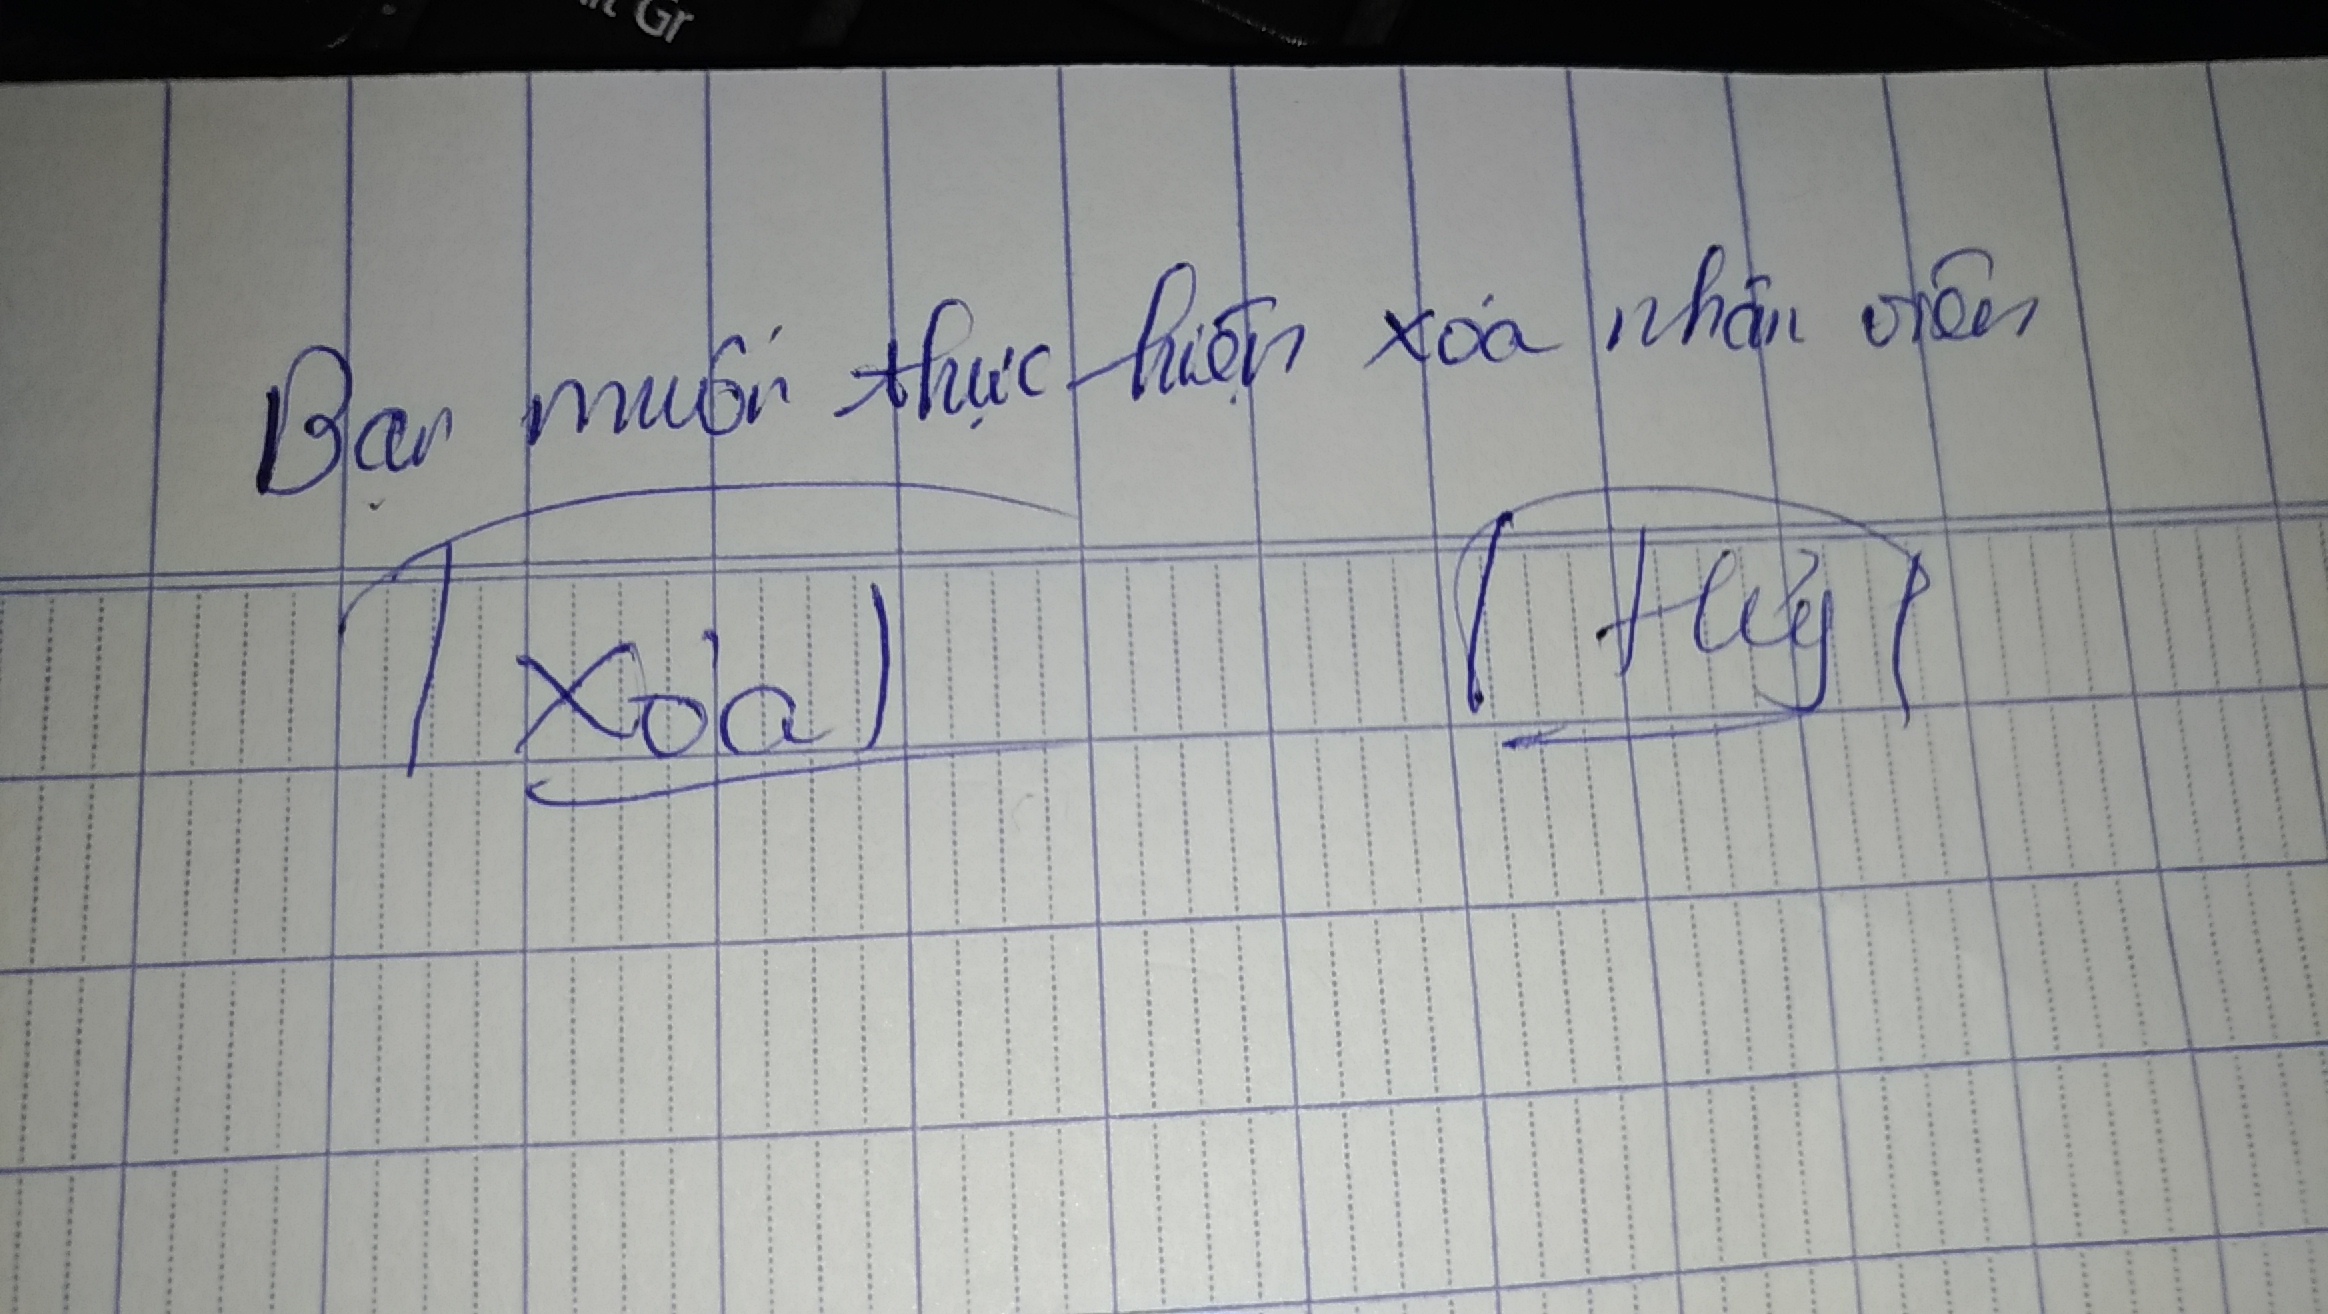 Alt Gr
Bạn muốn thực hiện xóa nhân viên
Xóa Hủy